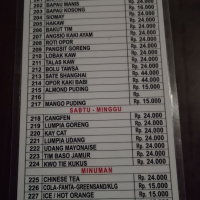 202 BAPAU MANIS Rp. 24.000
203 BAPAU KOSONG Rp. 24.000
204 SIOMAY Rp. 24.000
205 HAKAW Rp. 24.000
206 BAKUT TIM Rp. 24.000
207 ANGSIO KAKI AYAM Rp. 24.000
208 ROTI OPOR Rp. 24.000
209 PANGSIT GORENG Rp. 24.000
210 LOBAK KAW Rp. 24.000
211 TALAS KAW Rp. 24.000
212 BOLU TAWSA Rp. 24.000
213 SATE SHANGHAI Rp. 44.000
214 OPOR KAKI BABI Rp. 44.000
215 ALMOND PUDING Rp. 16.000
216 Rp.
217 MANGO PUDING Rp. 16.000
SABTU - MINGGU
218 CANGFEN Rp. 24.000
219 LUMPIA GORENG Rp. 24.000
220 KAY CAT Rp. 24.000
221 LUMPIA UDANG Rp. 24.000
222 UDANG MAYONAISE Rp. 24.000
223 TIM BASO JAMUR Rp. 24.000
224 KWO TIE KUKUS Rp. 24.000
MINUMAN
225 CHINESE TEA Rp. 24.000
226 COLA-FANTA-GREENSAND/KLG Rp. 15.000
227 ICE / HOT ORANGE Rp. 15.000